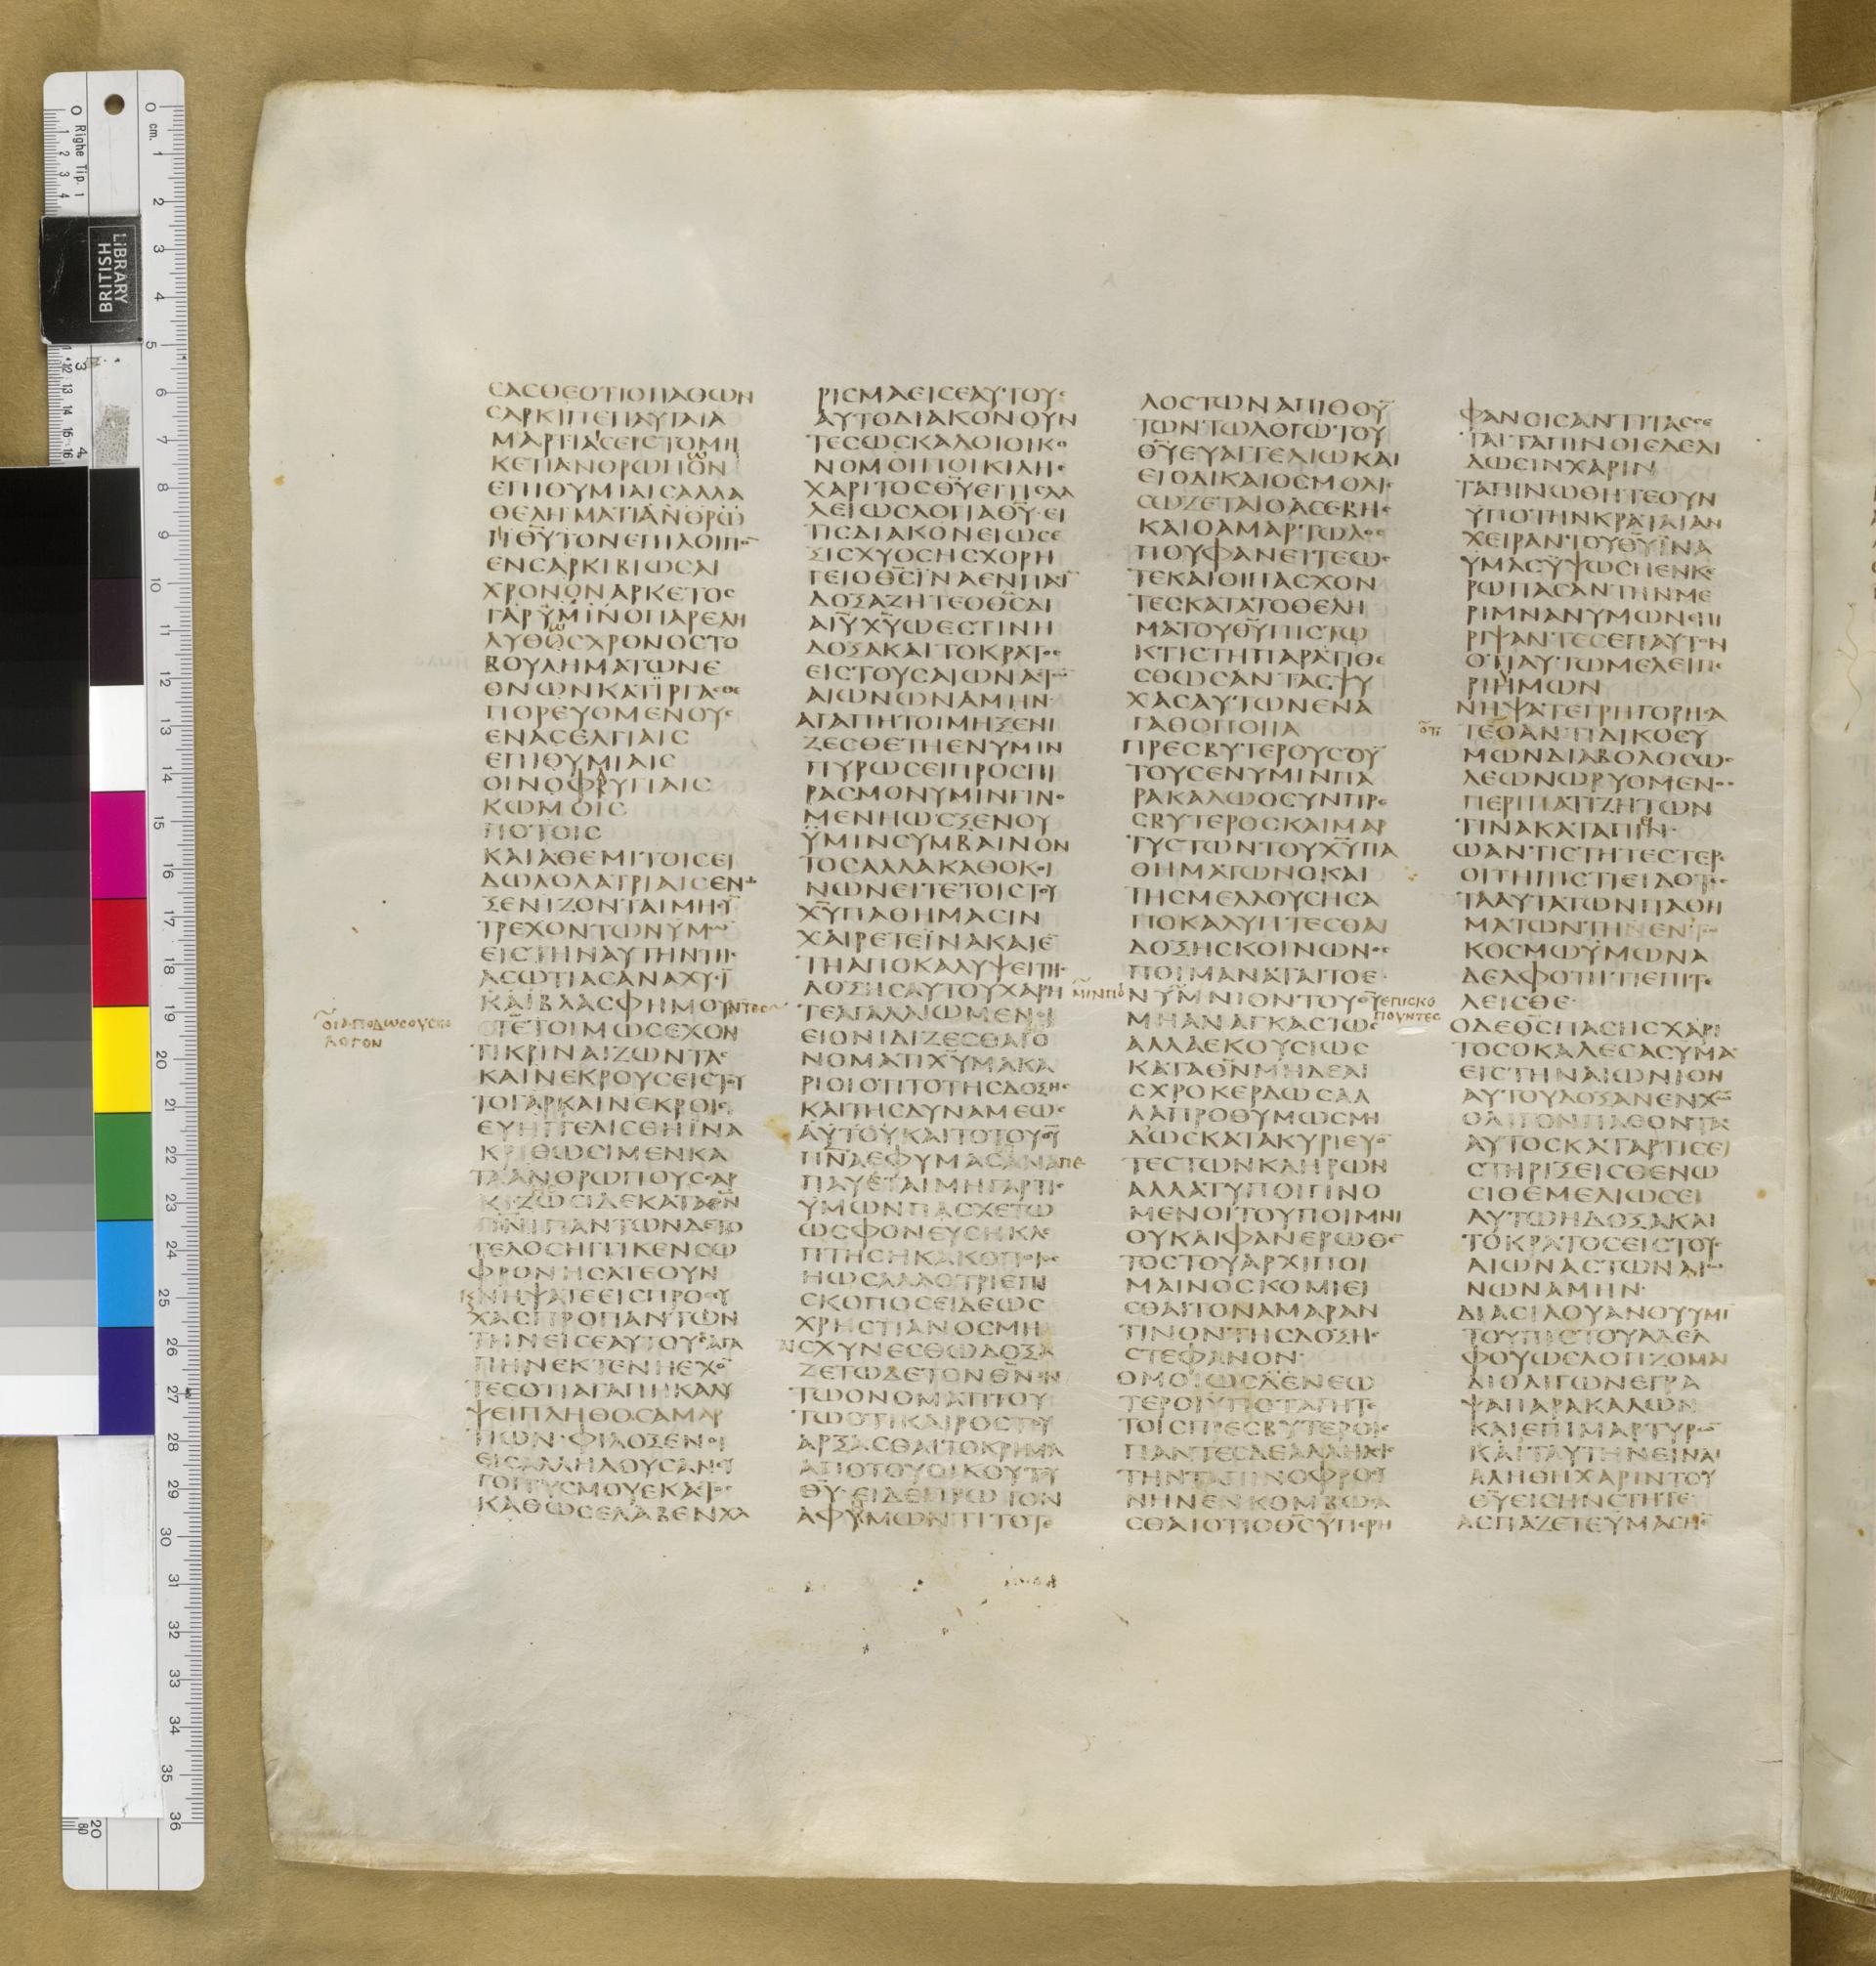 LIBRARY
BRITISH
ϹΑϹΘΕΟΤΙΟΠΑΘΩΝ
ϹΑΡΚΙΠΕΠΑΥΤΑΙΑ
ΜΑΡΤΙΑϹΕΙϹΤΟΜΗ
ΚΕΤΙΑΝΟΡΩΠΩΝ
ΕΠΙΘΥΜΙΑΙϹΑΛΛΑ
ΘΕΛΗΜΑΤΙΑΝΘΡΩ
ΠΙΘΥΤΟΝΕΠΙΛΟΙΠΟ
ΕΝϹΑΡΚΙΒΙΩϹΑΙ
ΧΡΟΝΟΝΑΡΚΕΤΟϹ
ΓΑΡΫΜΙΝΟΠΑΡΕΛΗ
ΛΥΘΩϹΧΡΟΝΟϹΤΟ
ΒΟΥΛΗΜΑΤΩΝΕ
ΘΝΩΝΚΑΤΙΡΓΑϹΘΕ
ΠΟΡΕΥΟΜΕΝΟΥϹ
ΕΝΑϹΕΛΓΙΑΙϹ
ΕΠΙΘΥΜΙΑΙϹ
ΟΙΝΟΦΡΥΓΙΑΙϹ
ΚΩΜΟΙϹ
ΠΟΤΟΙϹ
ΚΑΙΑΘΕΜΙΤΟΙϹΕΙ
ΔΩΛΟΛΑΤΡΙΑΙϹΕΝΩ
ΞΕΝΙΖΟΝΤΑΙΜΗϹΥ
ΤΡΕΧΟΝΤΩΝΫΜΩ
ΕΙϹΤΗΝΑΥΤΗΝΤΗϹ
ΑϹΩΤΙΑϹΑΝΑΧΥϹΙ
ΚΑΙΒΛΑϹΦΗΜΟΥΝΤΕϹ
ΟΙΑΠΟΔΩϹΟΥϹΙΝ
ΛΟΓΟΝ
ΤΕΤΟΙΜΩϹΕΧΟΝ
ΤΙΚΡΙΝΑΙΖΩΝΤΑϹ
ΚΑΙΝΕΚΡΟΥϹΕΙϹΤΟΥ
ΤΟΓΑΡΚΑΙΝΕΚΡΟΙϹ
ΕΥΗΓΓΕΛΙϹΘΗΪΝΑ
ΚΡΙΘΩϹΙΜΕΝΚΑ
ΤΑΑΝΘΡΩΠΟΥϹϹΑΡ
ΚΙΖΩϹΙΔΕΚΑΤΑΘΝ
ΠΝΙΠΑΝΤΩΝΔΕΤΟ
ΤΕΛΟϹΗΓΓΙΚΕΝϹΩ
ΦΡΟΝΗϹΑΤΕΟΥΝ
ΚΝΗΨΑΤΕΕΙϹΠΡΟϹΕΥ
ΧΑϹΠΡΟΠΑΝΤΩΝ
ΤΗΝΕΙϹΕΑΥΤΟΥϹΑΓΑ
ΠΗΝΕΚΤΕΝΗΕΧΟ
ΤΕϹΟΤΙΑΓΑΠΗΚΑΛΥ
ΨΕΙΠΛΗΘΟϹΑΜΑΡ
ΤΙΩΝ·ΦΙΛΟΞΕΝΟΙ
ΕΙϹΑΛΛΗΛΟΥϹΑΝΕΥ
ΓΟΓΓΥϹΜΟΥΕΚΑϹΤΟϹ
ΚΑΘΩϹΕΛΑΒΕΝΧΑ
ΡΙϹΜΑΕΙϹΕΑΥΤΟΥϹ
ΑΥΤΟΔΙΑΚΟΝΟΥΝ
ΤΕϹΩϹΚΑΛΟΙΟΙΚΟ
ΝΟΜΟΙΠΟΙΚΙΛΗϹ
ΧΑΡΙΤΟϹΘΥΕΙΤΙϹΛΑ
ΛΕΙΩϹΛΟΓΙΑΘΥ·ΕΙ
ΤΙϹΔΙΑΚΟΝΕΙΩϹΕ
ΞΙϹΧΥΟϹΗϹΧΟΡΗ
ΓΕΙΟΘϹΪΝΑΕΝΠΑΝ
ΔΟΞΑΖΗΤΕΟΘϹΔΙ
ΑΙΥΧΥΩΕϹΤΙΝΗ
ΔΟΞΑΚΑΙΤΟΚΡΑΤΟϹ
ΕΙϹΤΟΥϹΑΙΩΝΑϹΤΩ
ΑΙΩΝΩΝΑΜΗΝ
ΑΓΑΠΗΤΟΙΜΗΞΕΝΙ
ΖΕϹΘΕΤΗΕΝΥΜΙΝ
ΠΥΡΩϹΕΙΠΡΟϹΠΙ
ΡΑϹΜΟΝΥΜΙΝΓΙΝΟ
ΜΕΝΗΩϹΞΕΝΟΥ
ΫΜΙΝϹΥΜΒΑΙΝΟΝ
ΤΟϹΑΛΛΑΚΑΘΟΚΟΙ
ΝΩΝΕΙΤΕΤΟΙϹΤΟΥ
ΧΥΠΑΘΗΜΑϹΙΝ
ΧΑΙΡΕΤΕΪΝΑΚΑΙΕ
ΤΗΑΠΟΚΑΛΥΨΕΙΤΗϹ
ΔΟΞΗϹΑΥΤΟΥΧΑΡΗ
ΤΕΑΓΑΛΛΙΩΜΕΝΟΙ
ΕΙΟΝΙΔΙΖΕϹΘΑΙΓΟ
ΝΟΜΑΤΙΧΥΜΑΚΑ
ΡΙΟΙΟΤΙΤΟΤΗϹΔΟΞΗϹ
ΚΑΙΤΗϹΔΥΝΑΜΕΩϹ
ΑΥΤΟΥΚΑΙΤΟΤΟΥΘΥ
ΠΝΑΕΦΥΜΑϹΑΝΑΠΕ
ΠΑΥΕΤΑΙΜΗΓΑΡΤΙϹ
ΥΜΩΝΠΑϹΧΕΤΩ
ΩϹΦΟΝΕΥϹΗΚΛΕ
ΠΤΗϹΗΚΑΚΟΠΟΙΟϹ
ΗΩϹΑΛΛΟΤΡΙΕΠΙ
ϹΚΟΠΟϹΕΙΔΕΩϹ
ΧΡΗϹΤΙΑΝΟϹΜΗ
ΑΙϹΧΥΝΕϹΘΩΔΟΞΑ
ΖΕΤΩΔΕΤΟΝΘΝΕΝ
ΤΩΟΝΟΜΑΤΙΤΟΥ
ΤΩΟΤΙΚΑΙΡΟϹΤΟΥ
ΑΡΞΑϹΘΑΙΤΟΚΡΙΜΑ
ΑΠΟΤΟΥΟΙΚΟΥΤΟΥ
ΘΥ·ΕΙΔΕΠΡΩΤΟΝ
ΑΦΥΜΩΝΤΙΤΟΤΕ
ΛΟϹΤΩΝΑΠΙΘΟΥ
ΤΩΝΤΩΛΟΓΩΤΟΥ
ΘΥΕΥΑΓΓΕΛΙΩΚΑΙ
ΕΙΟΔΙΚΑΙΟϹΜΟΛΙϹ
ϹΩΖΕΤΑΙΟΑϹΕΒΗϹ
ΚΑΙΟΑΜΑΡΤΩΛΟϹ
ΠΟΥΦΑΝΕΙΤΕΩϹ
ΤΕΚΑΙΟΙΠΑϹΧΟΝ
ΤΕϹΚΑΤΑΤΟΘΕΛΗ
ΜΑΤΟΥΘΥΠΙϹΤΩ
ΚΤΙϹΤΗΠΑΡΑΤΙΘΕ
ϹΘΩϹΑΝΤΑϹΨΥ
ΧΑϹΑΥΤΩΝΕΝΑ
ΓΑΘΟΠΟΙΙΑ
ΠΡΕϹΒΥΤΕΡΟΥϹΟΥ
ΤΟΥϹΕΝΥΜΙΝΠΑ
ΡΑΚΑΛΩΟϹΥΝΠΡΕ
ϹΒΥΤΕΡΟϹΚΑΙΜΑΡ
ΤΥϹΤΩΝΤΟΥΧΥΠΑ
ΘΗΜΑΤΩΝΟΚΑΙ
ΤΗϹΜΕΛΛΟΥϹΗϹΑ
ΠΟΚΑΛΥΠΤΕϹΘΑΙ
ΔΟΞΗϹΚΟΙΝΩΝΟϹ
ΠΟΙΜΑΝΑΤΑΙΤΟΕ
ΜΙΝΠΟ
ΝΥΜΝΙΟΝΤΟΥΘΥ
ΕΠΙϹΚΟ
ΠΟΥΝΤΕϹ
ΜΗΑΝΑΓΚΑϹΤΩϹ
ΑΛΛΑΕΚΟΥϹΙΩϹ
ΚΑΤΑΘΝΜΗΔΕΑΙ
ϹΧΡΟΚΕΡΔΩϹΑΛ
ΛΑΠΡΟΘΥΜΩϹΜΗ
ΔΩϹΚΑΤΑΚΥΡΙΕΥΟ
ΤΕϹΤΩΝΚΛΗΡΩΝ
ΑΛΛΑΤΥΠΟΙΓΙΝΟ
ΜΕΝΟΙΤΟΥΠΟΙΜΝΙ
ΟΥΚΑΙΦΑΝΕΡΩΘΕ
ΤΟϹΤΟΥΑΡΧΙΠΟΙ
ΜΑΙΝΟϹΚΟΜΙΕΙ
ϹΘΑΙΤΟΝΑΜΑΡΑΝ
ΤΙΝΟΝΤΗϹΔΟΞΗϹ
ϹΤΕΦΑΝΟΝ·
ΟΜΟΙΩϹΔΕΝΕΩ
ΤΕΡΟΙΥΠΟΤΑΓΗΤΕ
ΤΟΙϹΠΡΕϹΒΥΤΕΡΟΙϹ
ΠΑΝΤΕϹΔΕΑΛΛΗΛΟΙϹ
ΤΗΝΤΑΠΙΝΟΦΡΟϹΥ
ΝΗΝΕΝΚΟΜΒΩϹΑ
ϹΘΑΙΟΤΙΟΘϹΥΠΕΡΗ
ΦΑΝΟΙϹΑΝΤΙΤΑϹϹΕ
ΤΑΙΤΑΠΙΝΟΙϹΔΕΔΙ
ΔΩϹΙΝΧΑΡΙΝ
ΤΑΠΙΝΩΘΗΤΕΟΥΝ
ΥΠΟΤΗΝΚΡΑΤΑΙΑΝ
ΧΕΙΡΑΝΤΟΥΘΥΪΝΑ
ΫΜΑϹΫΨΩϹΗΕΝΚΕ
ΡΩΠΑϹΑΝΤΗΝΜΕ
ΡΙΜΝΑΝΥΜΩΝΕΠΙ
ΡΙΨΑΝΤΕϹΕΠΑΥΤΟΝ
ΟΤΙΑΥΤΩΜΕΛΕΙΠΕ
ΡΙΗΜΩΝ
ΝΗΨΑΤΕΓΡΗΓΟΡΗϹΑ
ΟΤΙ
ΤΕΟΑΝΤΙΔΙΚΟϹΥ
ΜΩΝΔΙΑΒΟΛΟϹΩϹ
ΛΕΩΝΩΡΥΟΜΕΝΟϹ
ΠΕΡΙΠΑΤΙΖΗΤΩΝ
ΤΙΝΑΚΑΤΑΠΙΝ
ΩΑΝΤΙϹΤΗΤΕϹΤΕΡΕ
ΟΙΤΗΠΙϹΤΙΕΙΔΟΤΕϹ
ΤΑΑΥΤΑΤΩΝΠΑΘΗ
ΜΑΤΩΝΤΗΕΝΤΩ
ΚΟϹΜΩΫΜΩΝΑ
ΔΕΛΦΟΤΗΤΙΕΠΙΤΕ
ΛΕΙϹΘΕ·
ΟΔΕΘϹΠΑϹΗϹΧΑΡΙ
ΤΟϹΟΚΑΛΕϹΑϹΥΜΑϹ
ΕΙϹΤΗΝΑΙΩΝΙΟΝ
ΑΥΤΟΥΔΟΞΑΝΕΝΧΩ
ΟΛΙΓΟΝΠΑΘΟΝΤΑϹ
ΑΥΤΟϹΚΑΤΑΡΤΙϹΕΙ
ϹΤΗΡΙΞΕΙϹΘΕΝΩ
ϹΙΘΕΜΕΛΙΩϹΕΙ
ΑΥΤΩΗΔΟΞΑΚΑΙ
ΤΟΚΡΑΤΟϹΕΙϹΤΟΥϹ
ΑΙΩΝΑϹΤΩΝΑΙΩ
ΝΩΝΑΜΗΝ·
ΔΙΑϹΙΛΟΥΑΝΟΥΥΜΙ
ΤΟΥΠΙϹΤΟΥΑΔΕΛ
ΦΟΥΩϹΛΟΓΙΖΟΜΑΙ
ΔΙΟΛΙΓΩΝΕΓΡΑ
ΨΑΠΑΡΑΚΑΛΩΝ
ΚΑΙΕΠΙΜΑΡΤΥΡΩ
ΚΑΙΤΑΥΤΗΝΕΙΝΑΙ
ΑΛΗΘΗΧΑΡΙΝΤΟΥ
ΘΥΕΙϹΗΝϹΤΗΤΕ
ΑϹΠΑΖΕΤΕΥΜΑϹΗ